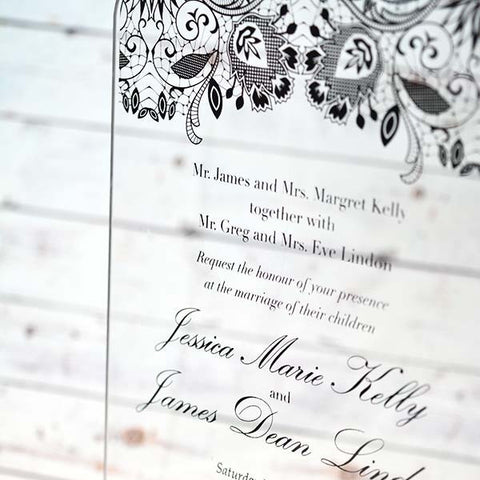 Mr. James and Mrs. Margret Kelly
together with
Mr. Greg and Mrs. Eve Lindon
Request the honour of your presence
at the marriage of their children
Jessica Marie Kelly
and
James Dean